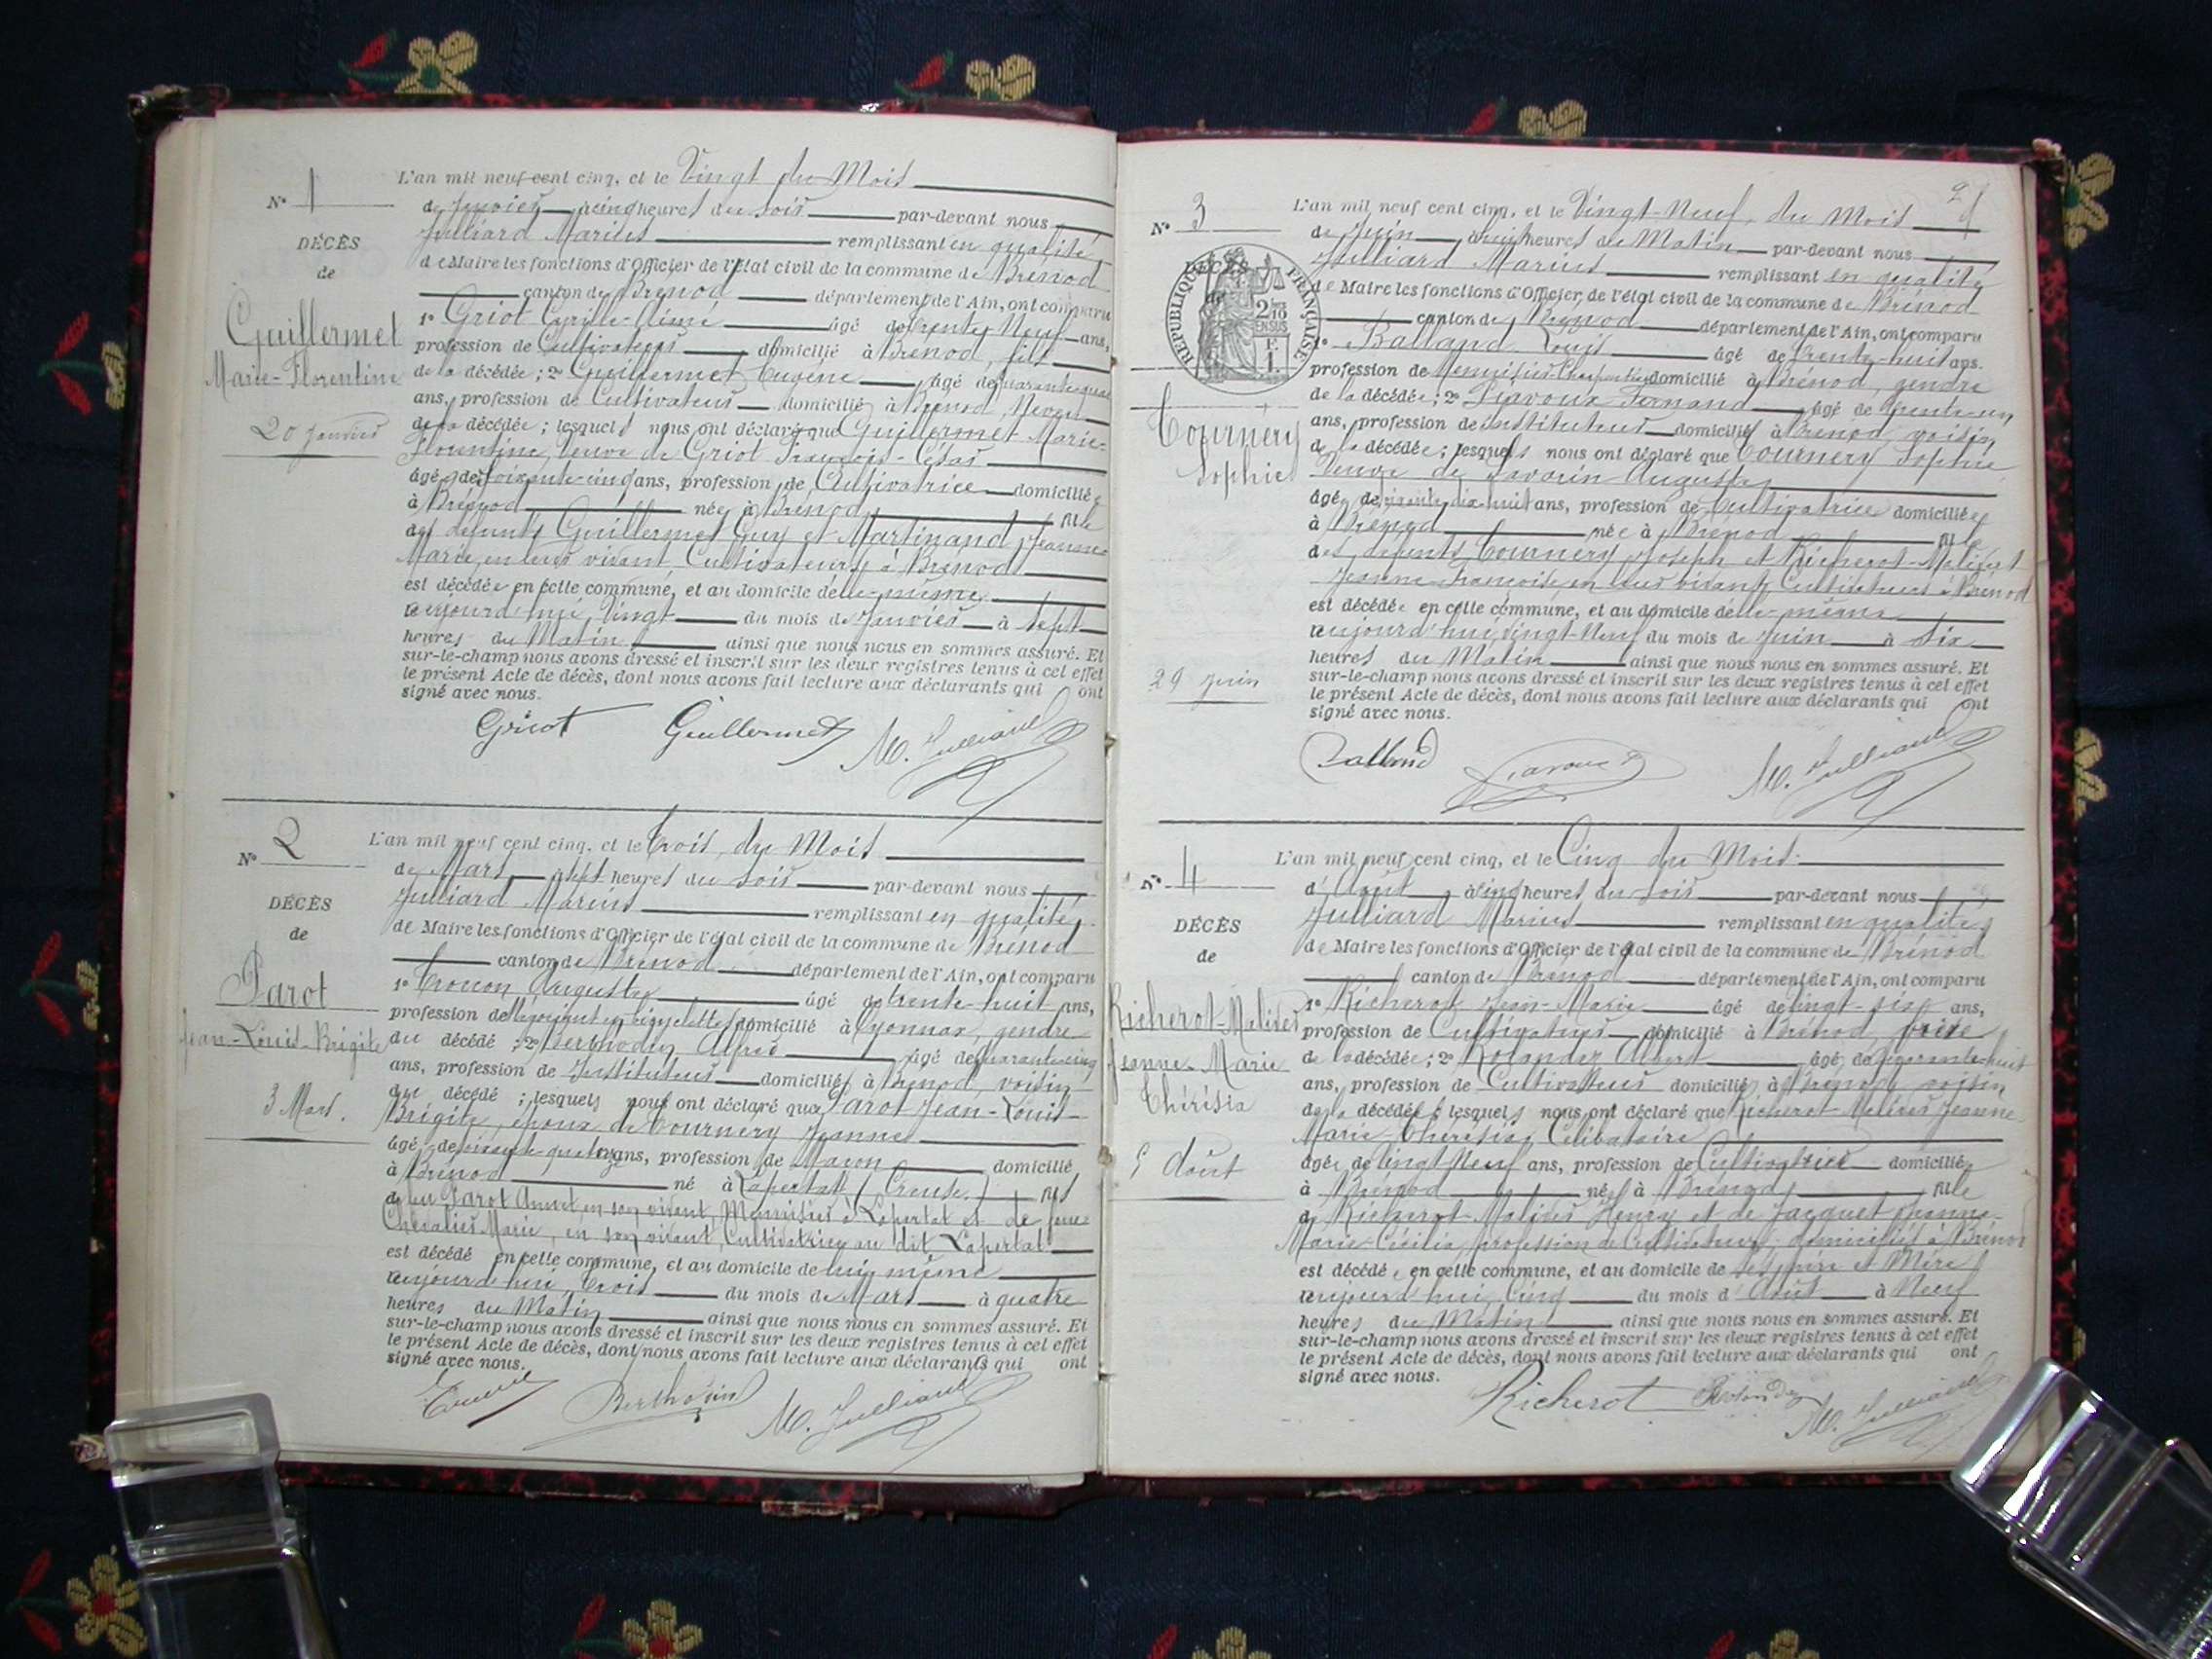 N° 1
DÉCÈS
de
Guillermet
Marie-Florentine
20 Janvier
L'an mil neuf cent cinq, et le Vingt du Mois
de Janvier à cinq heures du soir par-devant nous
Julliard Marius remplissant en qualité
de Maire les fonctions d'Officier de l'état civil de la commune de Brénod
canton de Brénod département de l'Ain, ont comparu
1° Griot Cyrille-Aimé âgé de trente Neuf ans,
profession de Cultivateur domicilié à Brénod, fils
de la décédée ; 2° Guillermet Eugène âgé de quarante
ans, profession de Cultivateur domicilié à Brénod, Neveu
de la décédée ; lesquels nous ont déclaré que Guillermet Marie-
Florentine, Veuve de Griot François-César
âgée de soixante-cinq ans, profession de Cultivatrice domiciliée
à Brénod née à Brénod fille
des défunts Guillermet Guy et Martinand Jeanne
Marie, en leur vivant Cultivateurs à Brénod
est décédée en cette commune, et au domicile d'elle-même
aujourd'hui, Vingt du mois de Janvier à Sept
heures du Matin ainsi que nous nous en sommes assuré. Et
sur-le-champ nous avons dressé et inscrit sur les deux registres tenus à cet effet
le présent Acte de décès, dont nous avons fait lecture aux déclarants qui ont
signé avec nous.
Griot Guillermet M. Julliard
N° 2
DÉCÈS
de
Parot
Jean-Louis-Brigite
3 Mars.
L'an mil neuf cent cinq, et le Trois du Mois
de Mars à sept heures du soir par-devant nous
Julliard Marius remplissant en qualité
de Maire les fonctions d'Officier de l'état civil de la commune de Brénod
canton de Brénod département de l'Ain, ont comparu
1° Auguste âgé de trente-huit ans,
profession de Négociant en bicyclettes domicilié à Oyonnax, gendre
du décédé ; 2° Alfred âgé de quarante-cinq
ans, profession de Instituteur domicilié à Brénod, voisin
du décédé ; lesquels nous ont déclaré que Parot Jean-Louis-
Brigite, époux de Tournery Jeanne
âgé de soixante-quatorze ans, profession de Maçon domicilié
à Brénod né à Lapertat (Creuse) fils
de feu Parot Annet en son vivant, Menuisier à Lapertat et de feue
Chevalier Marie, en son vivant, Cultivatrice au dit Lapertat
est décédé en cette commune, et au domicile de lui même
aujourd'hui, Trois du mois de Mars à quatre
heures du Matin ainsi que nous nous en sommes assuré. Et
sur-le-champ nous avons dressé et inscrit sur les deux registres tenus à cet effet
le présent Acte de décès, dont nous avons fait lecture aux déclarants qui ont
signé avec nous.
M. Julliard
2
N° 3
DÉCÈS
de
RÉPUBLIQUE FRANÇAISE
Tournery
Sophie
29 Juin
L'an mil neuf cent cinq, et le Vingt-Neuf du Mois
de Juin à huit heures du Matin par-devant nous
Julliard Marius remplissant en qualité
de Maire les fonctions d'Officier de l'état civil de la commune de Brénod
canton de Brénod département de l'Ain, ont comparu
1° Balland Louis âgé de trente-huit ans.
profession de Menuisier-Charpentier domicilié à Brénod, gendre
de la décédée ; 2° Fernand âgé de trente-un
ans, profession de Instituteur domicilié à Brénod, voisin
de la décédée ; lesquels nous ont déclaré que Tournery Sophie
Veuve de Savarin Auguste
âgée de ans, profession de Cultivatrice domiciliée
à Brénod née à Brénod fille
des défunts Tournery Joseph et Richerot-Malivert
Jeanne-Françoise, en leur vivant, Cultivateurs à Brénod
est décédée en cette commune, et au domicile d'elle-même
aujourd'hui, Vingt-Neuf du mois de Juin à Six
heures du Matin ainsi que nous nous en sommes assuré. Et
sur-le-champ nous avons dressé et inscrit sur les deux registres tenus à cet effet
le présent Acte de décès, dont nous avons fait lecture aux déclarants qui ont
signé avec nous.
Balland M. Julliard
N° 4
DÉCÈS
de
Richerot-Malivert
Jeanne-Marie
Thérésia
5 Août
L'an mil neuf cent cinq, et le Cinq du Mois
d'Août à cinq heures du soir par-devant nous
Julliard Marius remplissant en qualité
de Maire les fonctions d'Officier de l'état civil de la commune de Brénod
canton de Brénod département de l'Ain, ont comparu
1° Richerot Jean-Marie âgé de vingt-six ans,
profession de Cultivateur domicilié à Brénod, frère
de la décédée ; 2° Rolandez Albert âgé de quarante-huit
ans, profession de Cultivateur domicilié à Brénod, voisin
de la décédée ; lesquels nous ont déclaré que Richerot-Malivert Jeanne
Marie-Thérésia, Célibataire
âgée de Vingt Neuf ans, profession de Cultivatrice domiciliée
à Brénod née à Brénod fille
de Richerot-Malivert Henry et de Jacquet Jeanne-
Marie-Césilia, profession de Cultivateurs, domiciliés à Brénod
est décédée en cette commune, et au domicile de ses père et Mère
aujourd'hui, Cinq du mois d'Août à Neuf
heures du Matin ainsi que nous nous en sommes assuré. Et
sur-le-champ nous avons dressé et inscrit sur les deux registres tenus à cet effet
le présent Acte de décès, dont nous avons fait lecture aux déclarants qui ont
signé avec nous.
Richerot Rolandez M. Julliard